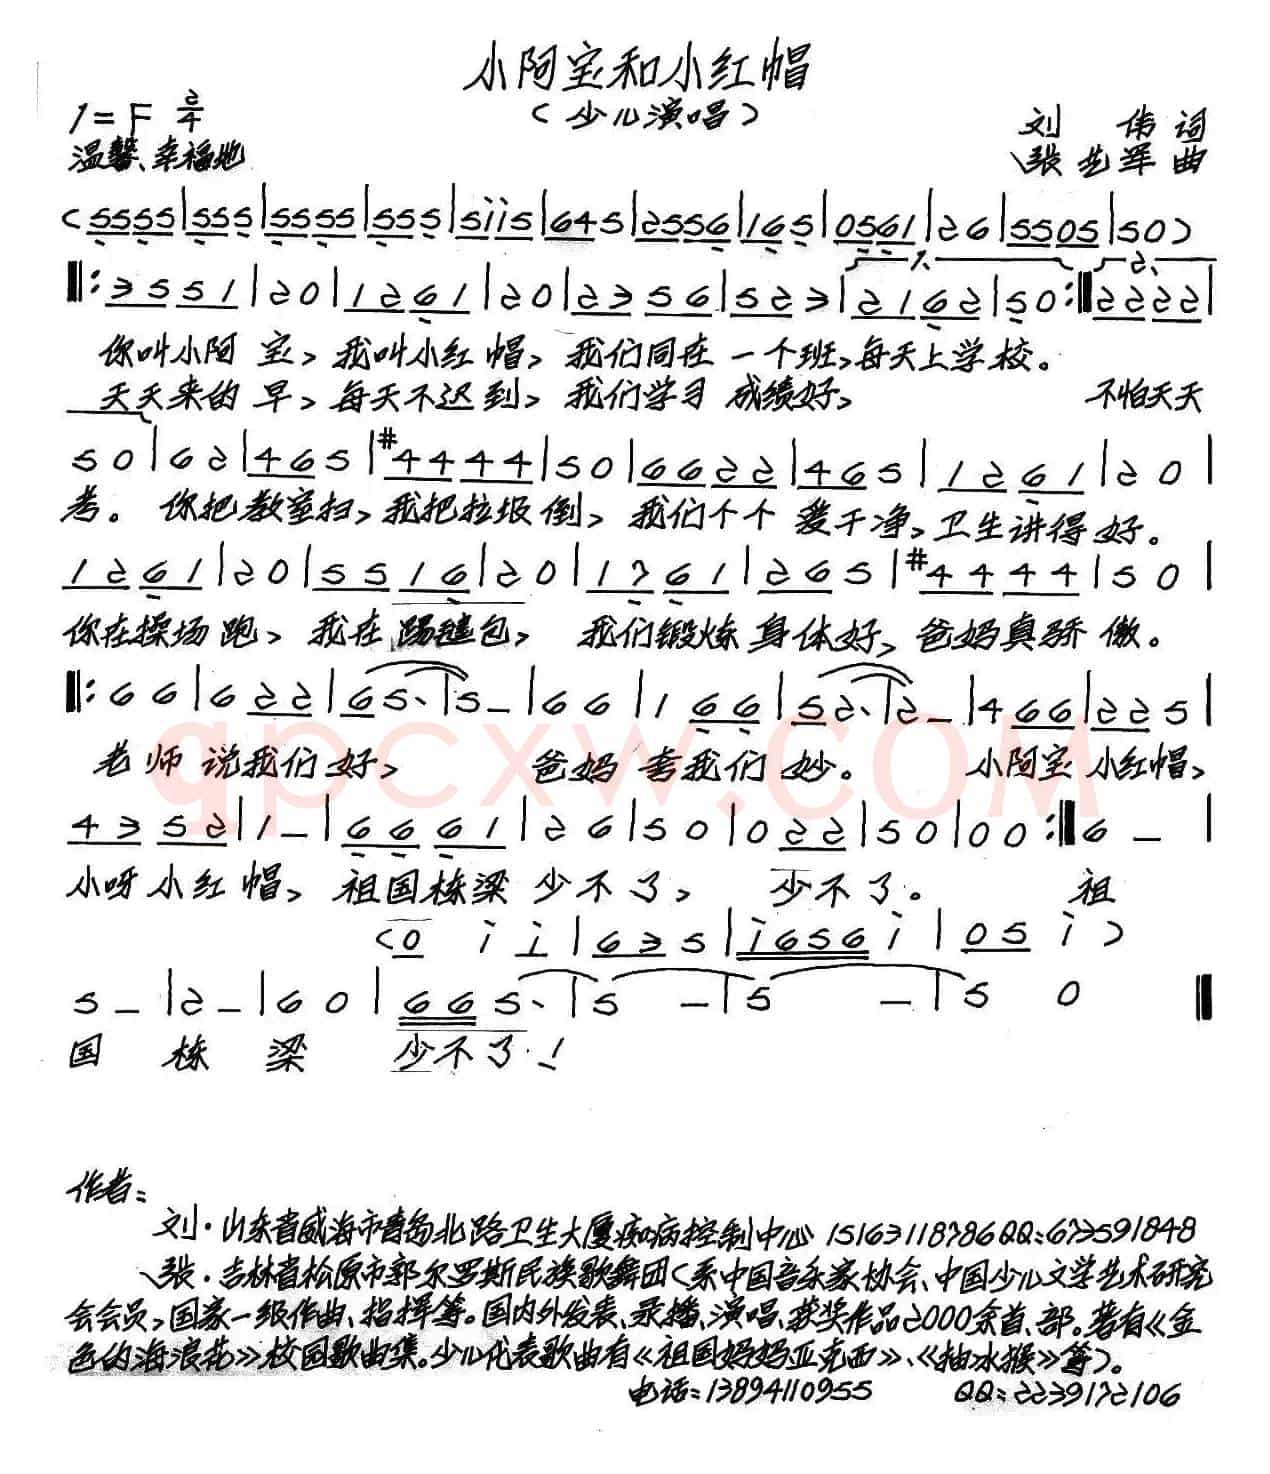 小阿宝和小红帽
（少儿演唱）
1=F 2/4
刘 伟 词
温馨、幸福地
张艺军 曲
(5555|555|5555|555|5ii5|645|2556|165|0561|26|5505|50)
‖:3551|20|1261|20|2356|523|1.2162|50:‖2.2222|
你叫小阿宝，我叫小红帽，我们同在一个班，每天上学校。
天天来的早，每天不迟到，我们学习成绩好， 不怕天天
50|62|465|#4444|50|6622|465|1261|20|
考。你把教室扫，我把垃圾倒，我们个个爱干净，卫生讲得好。
1261|20|5516|20|1761|265|#4444|50|
你在操场跑，我在踢毽包，我们锻炼身体好，爸妈真骄傲。
‖:66|622|65.|5-|66|166|52.|2-|466|225|
老师说我们好， 爸妈夸我们妙。 小阿宝小红帽，
4352|1-|6661|26|50|022|50|00:‖6-|
小呀小红帽，祖国栋梁少不了， 少不了。 祖
(0 i i|635|i656i|05i)
5-|2-|60|665.|5-|5-|50‖
国栋梁 少不了！
作者：
刘·山东省威海市青岛北路卫生大厦疾病控制中心 15163118786 QQ:673591848
张·吉林省松原市郭尔罗斯民族歌舞团（系中国音乐家协会、中国少儿文学艺术研究
会会员，国家一级作曲、指挥等。国内外发表、录播、演唱、获奖作品2000余首、部。著有《金
色的海浪花》校园歌曲集。少儿代表歌曲有《祖国妈妈亚克西》、《抽冰猴》等）。
电话：13894110955 QQ:2239172106
qpcxw.COM